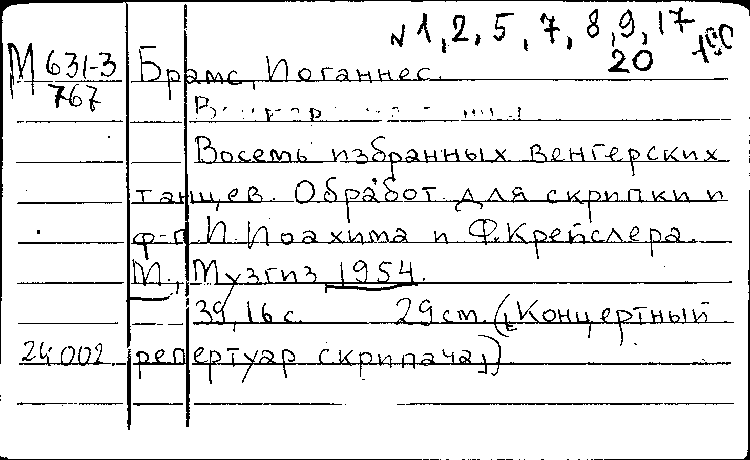 N 1, 2, 5, 7, 8, 9, 17
20
М 631-3
767
Брамс, Иоганнес.
Восемь избранных венгерских
танцев. Обработ для скрипки и
ф-п. И. Иоахима и Ф. Крейслера.
М., Музгиз 1954.
39, 16 с. 29 см. (Концертный
24 002. репертуар скрипача)